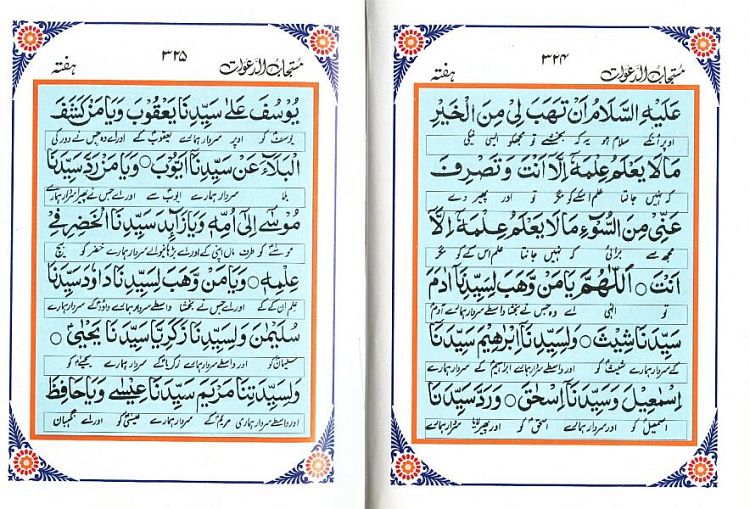 مستجاب الدعوات ۳۲۴ ہفتہ
عَلَيْهِ السَّلَامُ اَنْ تَهَبَ لِىْ مِنَ الْخَيْرِ
اوپر اُنکے سلام ہو یہ کہ بخشے تو مجھکو ایسی نیکی
مَالَا يَعْلَمُ عِلْمَهٗ اِلَّا اَنْتَ وَتَصْرِفَ
کہ نہیں جانتا علم اسکے کو مگر تو اور پھیر دے
عَنِّىْ مِنَ السُّوْٓءِ مَالَا يَعْلَمُ عِلْمَهٗ اِلَّا
مجھ سے برائی کہ نہیں جانتا علم اس کے کو مگر
اَنْتَ ○ اَللّٰهُمَّ يَا مَنْ وَّهَبَ لِسَيِّدِنَا اٰدَمَ
تو الٰہی اے وہ جس نے بخشا واسطے سردار ہمارے آدمؑ
سَيِّدَنَا شِيْثَ ○ وَلِسَيِّدِنَا اِبْرٰهِيْمَ سَيِّدَنَا
کے سردار ہمارے شیثؑ کو اور واسطے سردار ہمارے ابراہیمؑ کے سردار ہمارے
اِسْمٰعِيْلَ وَسَيِّدَنَآ اِسْحٰقَ ○ وَرَدَّ سَيِّدَنَا
اسمٰعیلؑ کو اور سردار ہمارے اسحٰقؑ کو اور پھیرنا سردار ہمارے
مستجاب الدعوات ۳۲۵ ہفتہ
يُوْسُفَ عَلٰى سَيِّدِنَا يَعْقُوْبَ وَيَا مَنْ كَشَفَ
یوسفؑ کو اوپر سردار ہمارے یعقوبؑ کے اور اے وہ جس نے دور کی
الْبَلَآءَ عَنْ سَيِّدِنَا اَيُّوْبَ ○ وَيَا مَنْ رَدَّ سَيِّدَنَا
بلا سردار ہمارے ایوبؑ سے اور اے جس نے پھیرا سردار ہمارے
مُوْسٰى اِلٰى اُمِّهٖ وَيَا زَآئِدَ سَيِّدِنَا الْخَضِرِ فِىْ
موسےٰؑ کو طرف ماں اپنی کے اور اے بڑھانیوالے سردار ہمارے خضر کو بیچ
عِلْمِهٖ ○ وَيَا مَنْ وَّهَبَ لِسَيِّدِنَا دَاوٗدَ سَيِّدَنَا
علم ان کے کے اور اے جس نے بخشا واسطے سردار ہمارے داؤدؑ کے سردار ہمارے
سُلَيْمٰنَ وَلِسَيِّدِنَا زَكَرِيَّا سَيِّدَنَا يَحْيٰى ○
سلیمانؑ کو اور واسطے سردار ہمارے زکریاؑ کے سردار ہمارے یحیےٰؑ کو
وَلِسَيِّدَتِنَا مَرْيَمَ سَيِّدَنَا عِيْسٰى وَيَا حَافِظَ
اور واسطے سردار ہماری مریمؑ کے سردار ہمارے عیسیٰؑ کو اور اے نگہبان